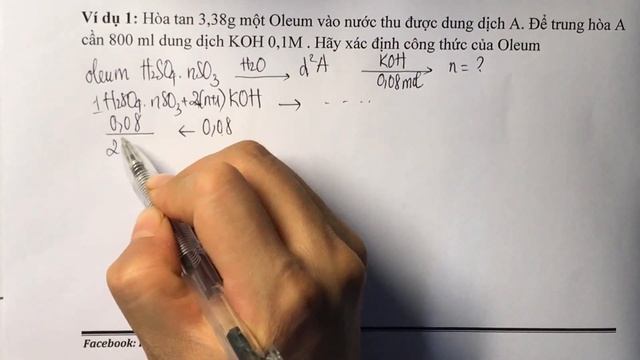 Ví dụ 1: Hòa tan 3,38g một Oleum vào nước thu được dung dịch A. Để trung hòa A
cần 800 ml dung dịch KOH 0,1M . Hãy xác định công thức của Oleum
oleum H2SO4.nSO3 H2O → d²A KOH 0,08mol → n = ?
1H2SO4.nSO3+2(n+1)KOH → ....
0,08 ← 0,08
2
Facebook: